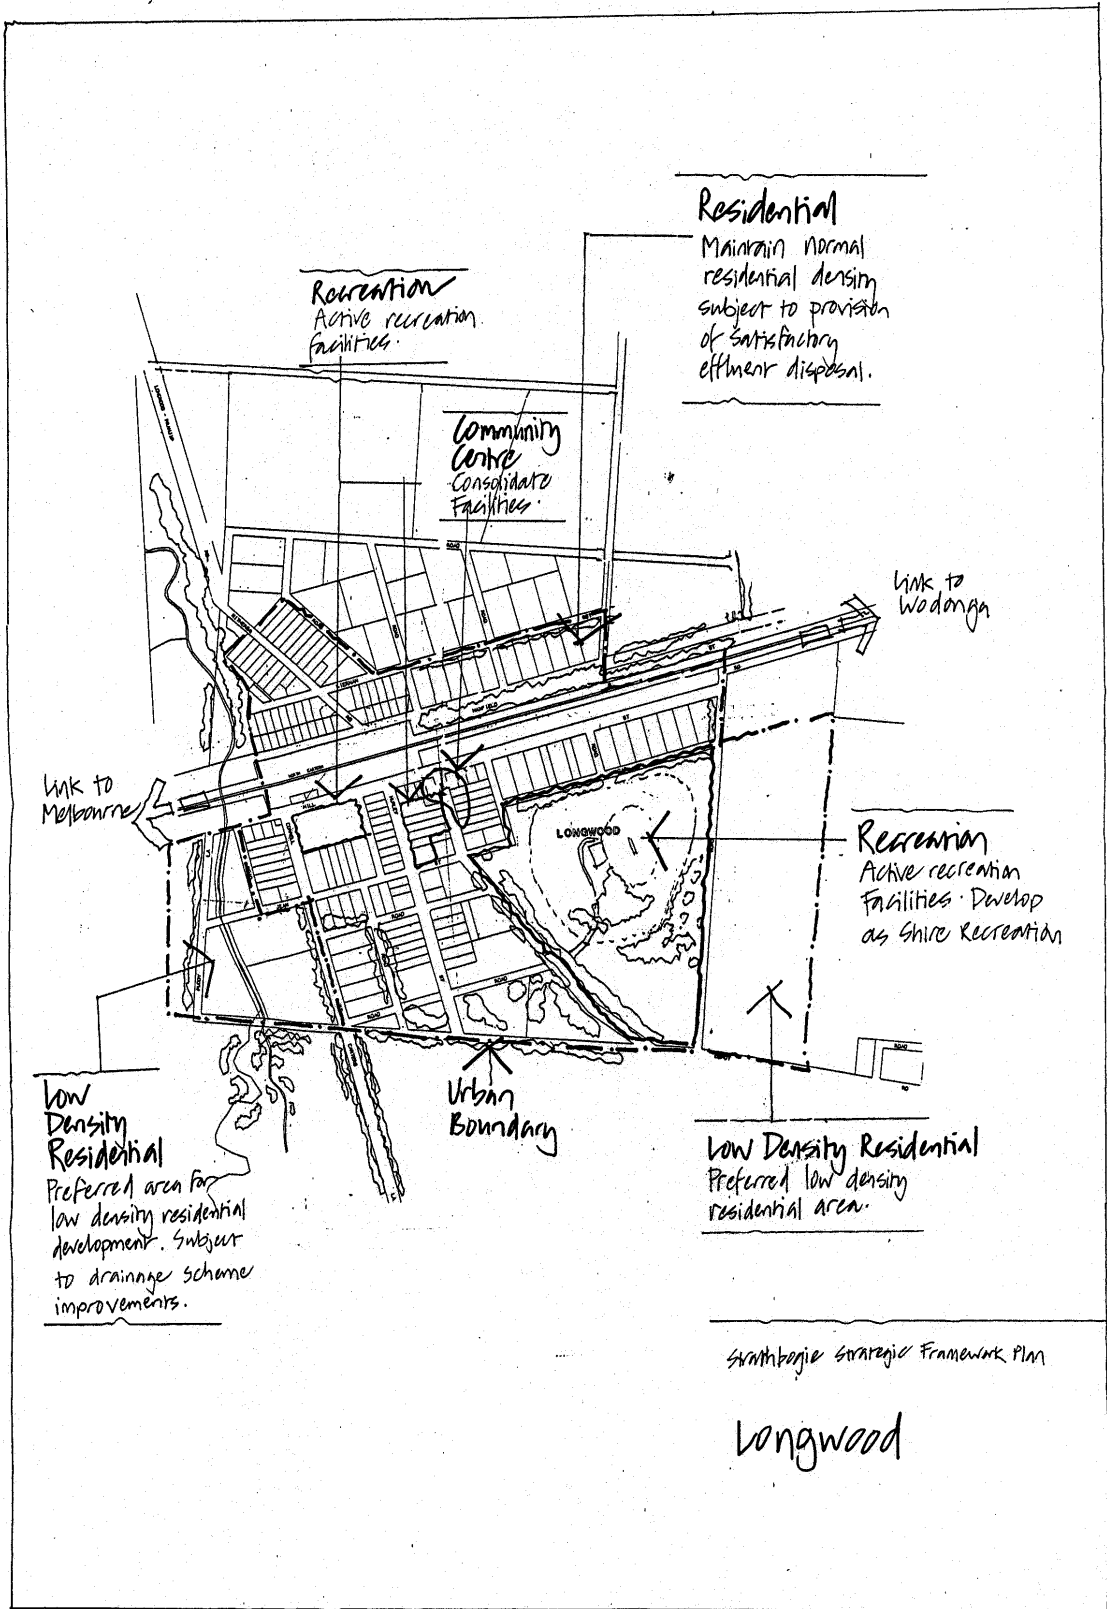 Residential
Maintain normal
residential density
subject to provision
of satisfactory
effluent disposal.
Recreation
Active recreation
facilities.
Community
Centre
Consolidate
Facilities.
ROAD
Link to
Wodonga
Link to
Melbourne
HILL
ST
RD
LONGWOOD
Recreation
Active recreation
Facilities. Develop
as Shire Recreation
ROAD
ROAD
ROAD
ROAD
RD
Low
Density
Residential
Preferred area for
low density residential
development. Subject
to drainage scheme
improvements.
Urban
Boundary
Low Density Residential
Preferred low density
residential area.
Strathbogie Strategic Framework Plan
Longwood